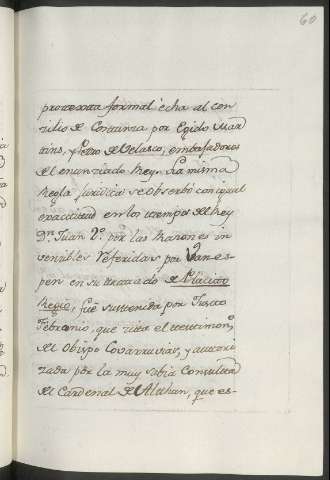 60
protexta formal écha al con
zilio de Constanza por Egido Mar
tins, y Pedro de Velasco, embajadores
del enunziado Rey. La misma
Regla juridica se observó con igual
exactitud en los tiempos del Rey
Dn. Juan 2º por las Razones in
vensibles referidas por Vanes-
pen en su tratado de Plácito
Regio, fué sustenida por Justo
Febronio, que zita el testimonº
del Obispo Covarruvias, y autori
zada por la muy sabia Consulta
del Cardenal de Althan, que es-